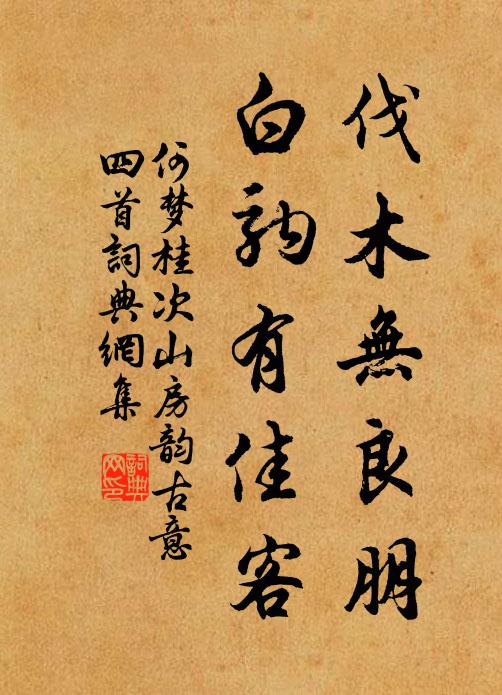 伐木無良朋
白駒有佳客
何梦桂次山房韵古意
四首詞典網集
詞典
网印